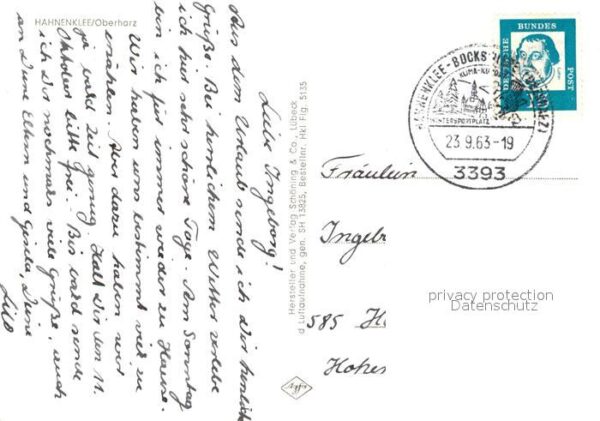 HAHNENKLEE/Oberharz
Liebe Ingeborg!
Aus dem Urlaub sende ich Dir herzliche
Grüße. Bei herrlichem Wetter verlebe
ich hier sehr schöne Tage. Am Sonntag
bin ich für immer wieder zu Hause.
Wir haben uns bestimmt viel zu
erzählen. Aus dazu haben wir
ja bald Zeit genug. Halt Dir den 11.
Oktober bitte frei. Bis bald sende
ich Dir nochmals viele Grüße, auch
an Deine Eltern und Gisela, Deine
Hersteller und Verlag Schöning & Co., Lübeck
d Luftaufnahme, gen. SH 13825, Bestellnr. Hkl Flg. 5135
Agfa
DEUTSCHE
BUNDES
POST
HAHNENKLEE-BOCKSWIESE (OBERHARZ)
WINTERSPORTPLATZ
23.9.63-19
3393
Fräulein
Ingeb
585 H
Hohe
privacy protection
Datenschutz